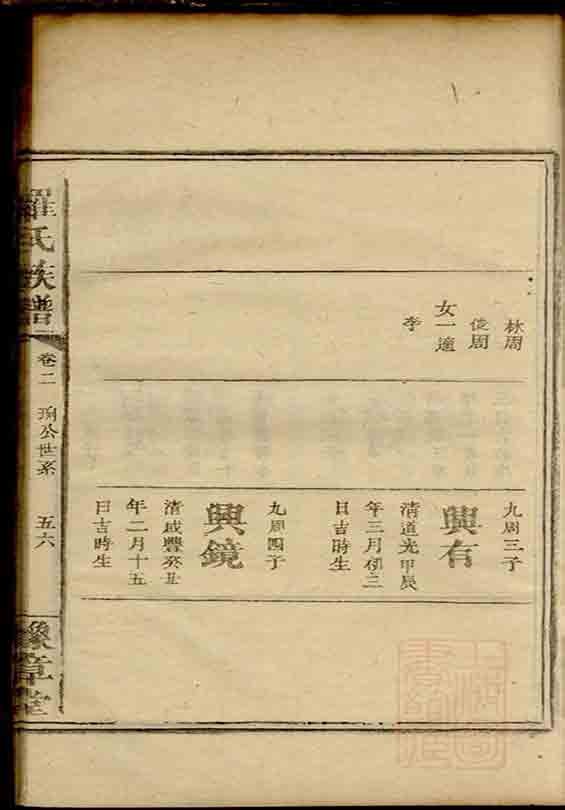 林周
俊周
女一適
李
九周三子
興有
清道光甲辰
年三月初三
日吉時生
九周四子
興鏡
清咸豐癸丑
年二月十五
日吉時生
羅氏族譜
卷二
公世系
五六
豫章堂